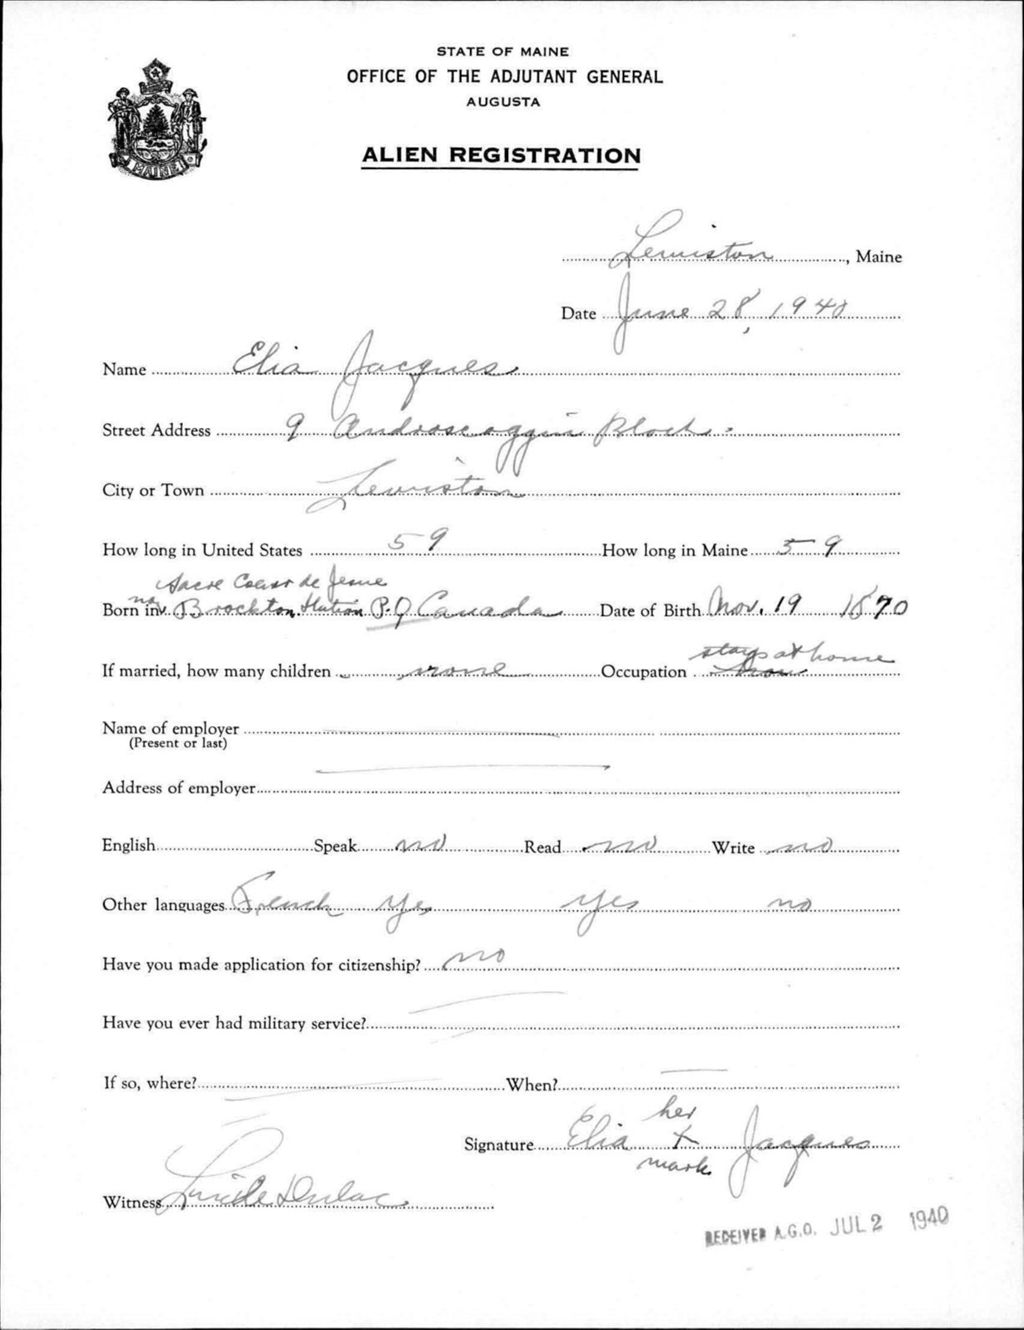 STATE OF MAINE
OFFICE OF THE ADJUTANT GENERAL
AUGUSTA
ALIEN REGISTRATION
MAINE
Lewiston, Maine
Date June 28, 1940
Name Elia Jacques
Street Address 9 Androscoggin Block
City or Town Lewiston
How long in United States 59 How long in Maine 59
Sacre Coeur de Jesue
Born in Brockton Station P.Q Canada Date of Birth Nov. 19 1870
stay at home
If married, how many children none Occupation
Name of employer
(Present or last)
Address of employer
English Speak no Read no Write no
Other languages French Yes Yes no
Have you made application for citizenship? no
Have you ever had military service?
If so, where? When?
her
Signature Elia X Jacques
mark
Witness Lucile Dulac
RECEIVED A.G.O. JUL 2 1940